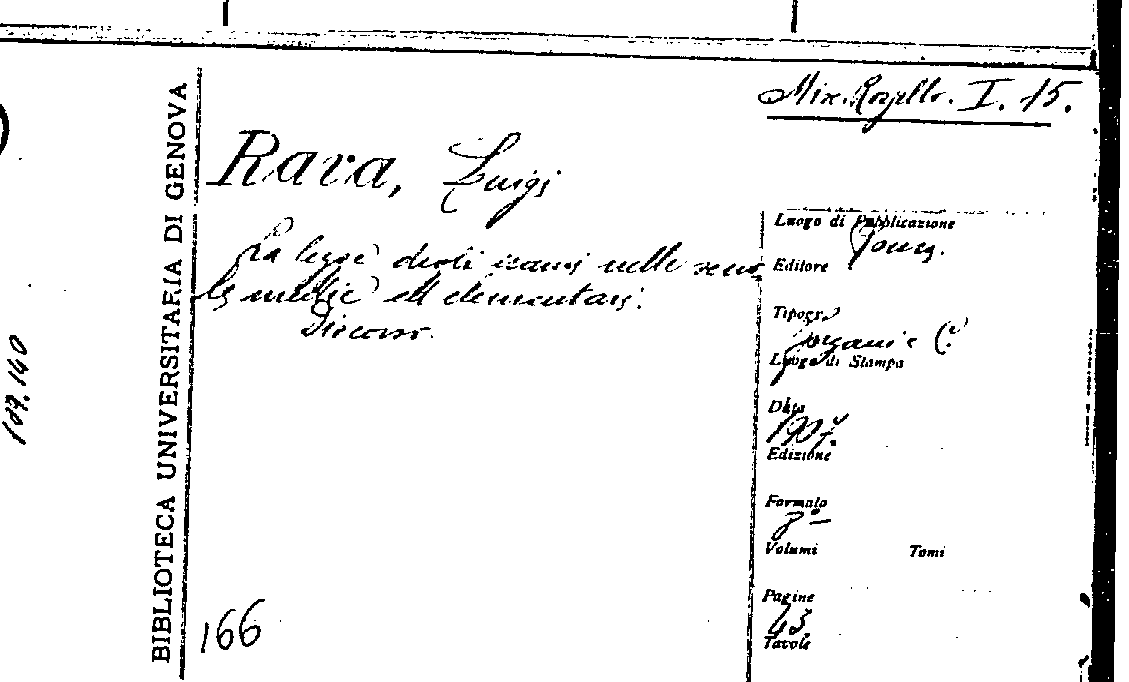 BIBLIOTECA UNIVERSITARIA DI GENOVA
I. 15.
Rava, Luigi
La legge degli esami nelle scuo
le medie ed elementari.
Discorso.
Luogo di Pubblicazione
Roma.
Editore
Tipogr.
Luogo di Stampa
Data
1907.
Edizione
Formato
8°
Volumi Tomi
Pagine
43
Tavole
166